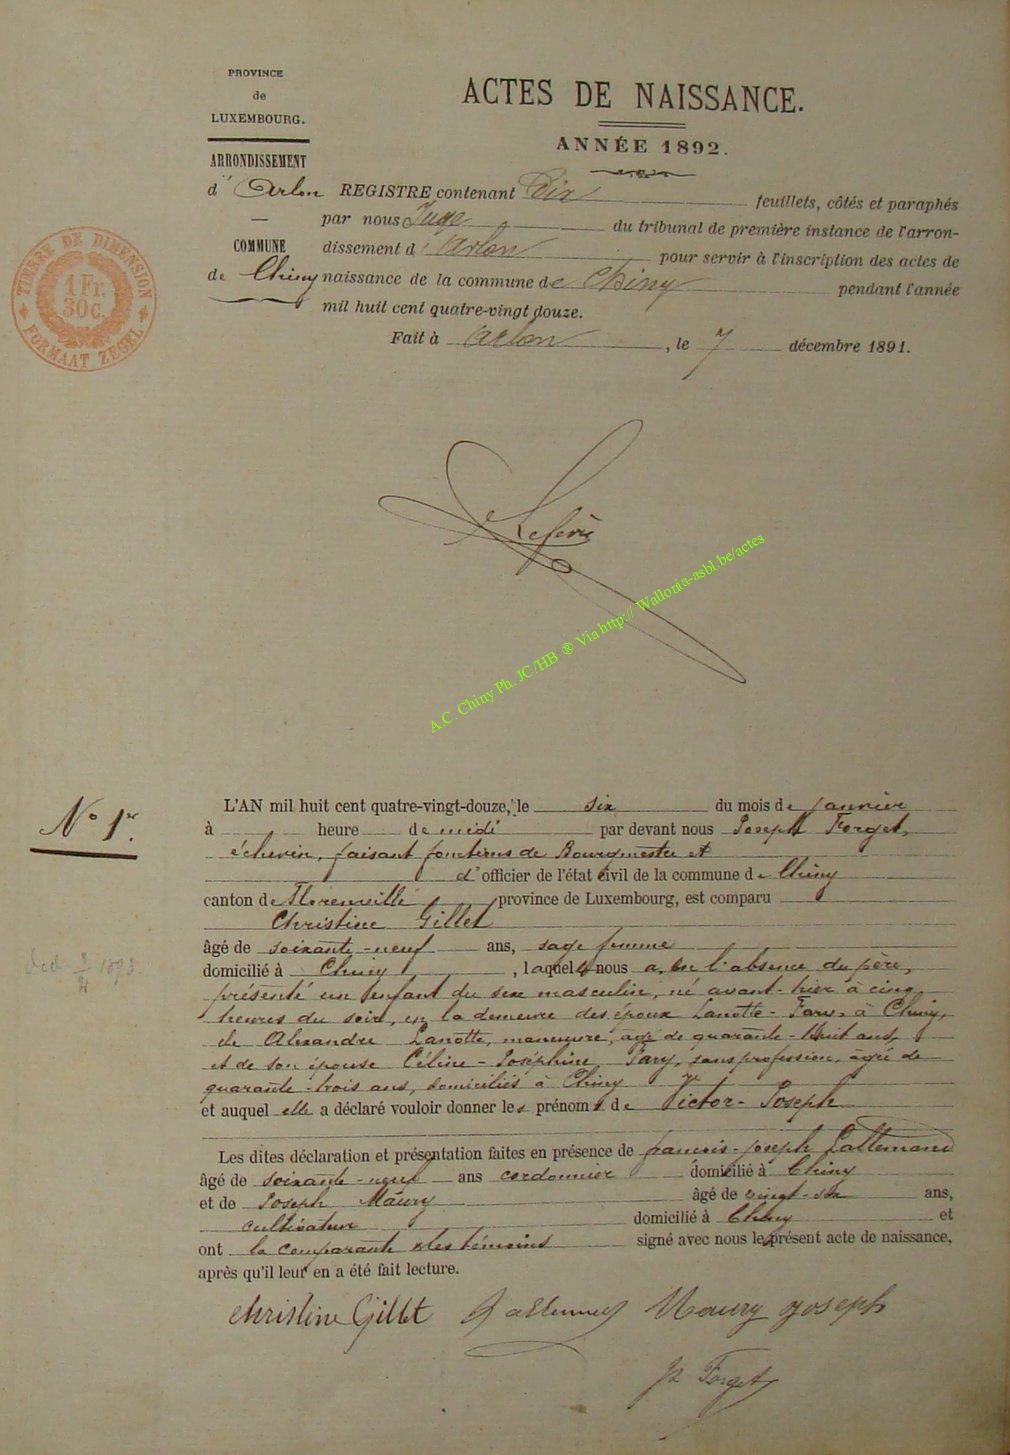 PROVINCE
de
LUXEMBOURG.
ARRONDISSEMENT
d' Arlon
COMMUNE
de Chiny
TIMBRE DE DIMENSION
1 Fr.
30 c.
FORMAAT ZEGEL
ACTES DE NAISSANCE.
ANNÉE 1892.
REGISTRE contenant Dix feuillets, côtés et paraphés
par nous Juge du tribunal de première instance de l'arron-
dissement d' Arlon pour servir à l'inscription des actes de
naissance de la commune de Chiny pendant l'année
mil huit cent quatre-vingt douze.
Fait à Arlon, le 7 décembre 1891.
Lefèvre
A.C. Chiny Ph. JC/HB ® Via http:// Wallonia-asbl.be/actes
N° 1er.
L'AN mil huit cent quatre-vingt-douze, le six du mois de janvier
à heure de midi par devant nous Joseph Forget,
échevin, faisant fonctions de Bourgmestre et
d'officier de l'état civil de la commune de Chiny
canton de Florenville, province de Luxembourg, est comparu
Christine Gillet
âgé de soixante-neuf ans, sage femme
domicilié à Chiny, laquelle nous a, en l'absence du père,
présenté un enfant du sexe masculin, né avant-hier à cinq
heures du soir, en la demeure des époux Lanotte-Fary, à Chiny,
de Alexandre Lanotte, manœuvre, âgé de quarante-huit ans,
et de son épouse Céline-Joséphine Fary, sans profession, agée de
quarante-trois ans, domiciliés à Chiny
et auquel elle a déclaré vouloir donner les prénoms de Victor-Joseph
Les dites déclaration et présentation faites en présence de françois-joseph Lallemand
âgé de soixante-neuf ans cordonnier domicilié à Chiny
et de Joseph Maury âgé de vingt-six ans,
cultivateur domicilié à Chiny et
ont la comparante & les témoins signé avec nous le présent acte de naissance,
après qu'il leur en a été fait lecture.
Christine Gillet Lallemand Maury joseph
Js Forget